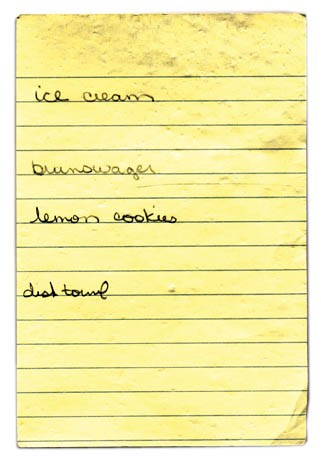 ice cream
brunswager
lemon cookies
dish towel